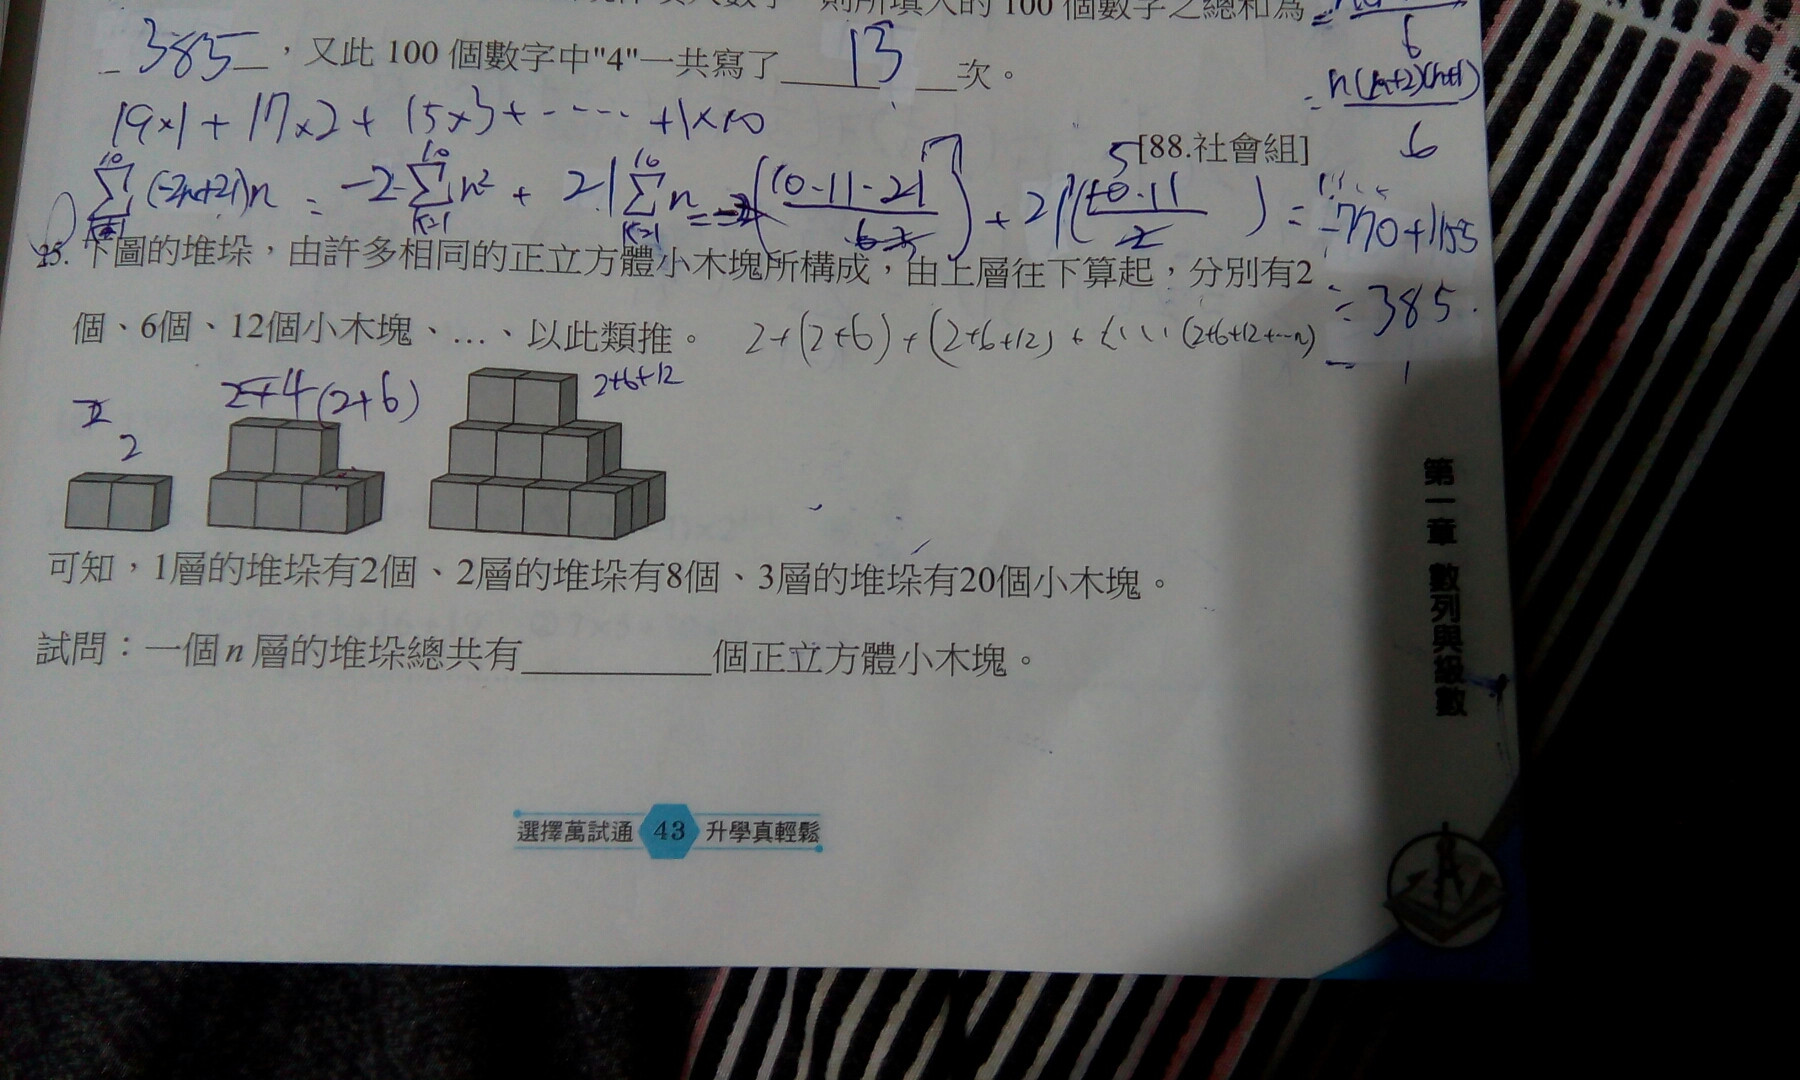 則所填入的 100 個數字之總和為
385，又此 100 個數字中"4"一共寫了 13 次。
6
n(n+2)(n+1)
6
19×1 + 17×2 + 15×3 + ...... + 1×10
[88.社會組]
(-2n+21)n = -2 n² + 21 n = 10·11·21 + 21( 10·11 ) = -770+1155
= 385
25. 下圖的堆垛，由許多相同的正立方體小木塊所構成，由上層往下算起，分別有2
個、6個、12個小木塊、…、以此類推。 2+(2+6)+(2+6+12)+ (2+6+12+...n)
2
2+4(2+6)
2+6+12
可知，1層的堆垛有2個、2層的堆垛有8個、3層的堆垛有20個小木塊。
試問：一個 n 層的堆垛總共有__________個正立方體小木塊。
選擇萬試通 43 升學真輕鬆
第一章 數列與級數